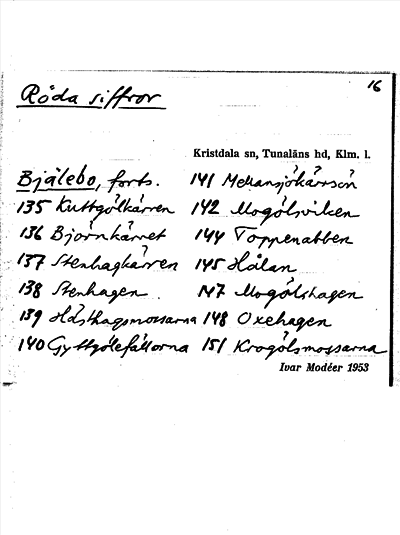 16
Röda siffror
Kristdala sn, Tunaläns hd, Klm. l.
Bjälebo, forts.
135 Kuttgölkärren
136 Björnkärret
137 Stenhagkärren
138 Stenhagen
139 Hästhagsmossarna
140 Gyttgölefällorna
141 Mellansjökärrsön
142 Mogölsviken
144 Toppenabben
145 Hålan
147 Mogölshagen
148 Oxehagen
151 Krogölsmossarna
Ivar Modéer 1953